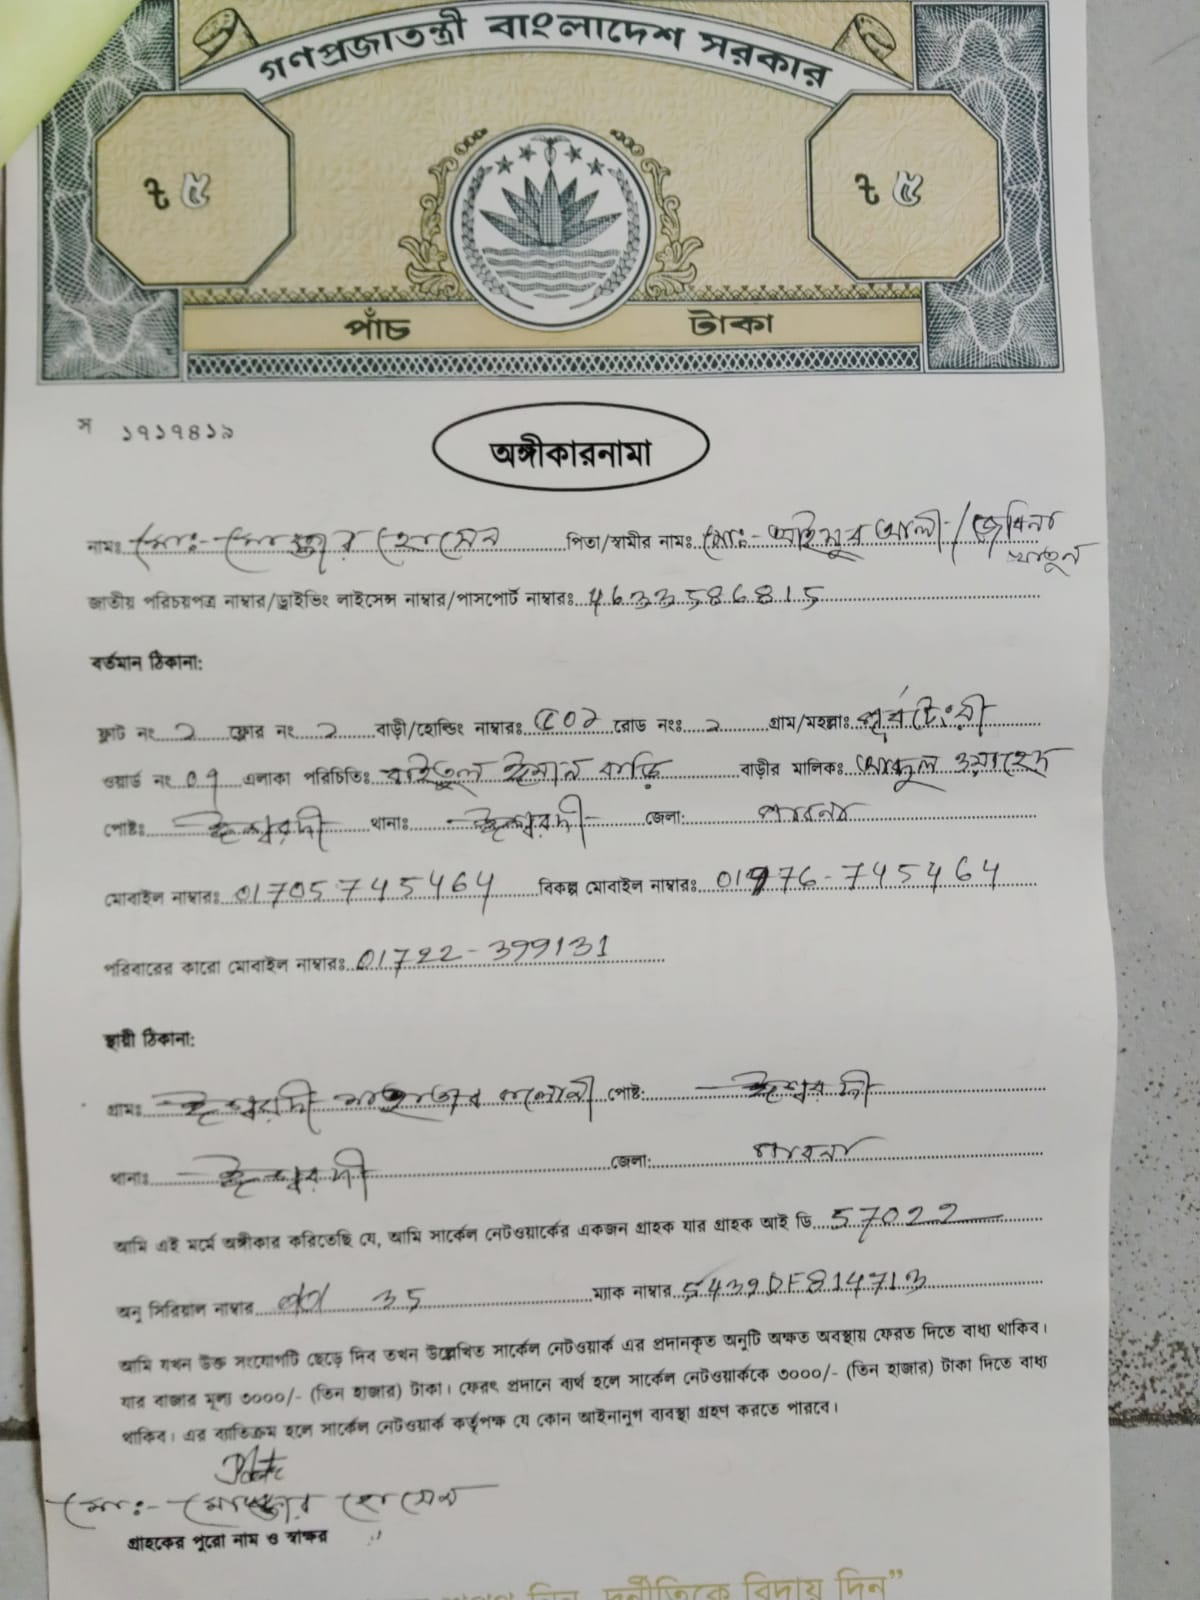 গণপ্রজাতন্ত্রী বাংলাদেশ সরকার
৳ ৫ ৳ ৫
পাঁচ টাকা
স ১৭১৭৪১৯
অঙ্গীকারনামা
নামঃ মোঃ- মোক্তার হোসেন পিতা/স্বামীর নামঃ মোঃ- আইনুব আলী / জেবিনা খাতুন
জাতীয় পরিচয়পত্র নাম্বার/ড্রাইভিং লাইসেন্স নাম্বার/পাসপোর্ট নাম্বারঃ 4633586815
বর্তমান ঠিকানা:
ফ্লাট নং ২ ফ্লোর নং ২ বাড়ী/হোল্ডিং নাম্বারঃ রোড নংঃ ২ গ্রাম/মহল্লাঃ পূর্বটেংরী
ওয়ার্ড নং 09 এলাকা পরিচিতিঃ বাইতুল ইমান বাড়ি বাড়ীর মালিকঃ ওয়াহেদ
পোষ্টঃ ঈশ্বরদী থানাঃ ঈশ্বরদী জেলা: পাবনা
মোবাইল নাম্বারঃ 01705745464 বিকল্প মোবাইল নাম্বারঃ 01976-745464
পরিবারের কারো মোবাইল নাম্বারঃ 01722-399131
স্থায়ী ঠিকানা:
গ্রামঃ ঈশ্বরদী কলোনী পোষ্ট: ঈশ্বরদী
থানাঃ ঈশ্বরদী জেলা: পাবনা
আমি এই মর্মে অঙ্গীকার করিতেছি যে, আমি সার্কেল নেটওয়ার্কের একজন গ্রাহক যার গ্রাহক আই ডি 57022
অনু সিরিয়াল নাম্বার 35 ম্যাক নাম্বার 5439DF814713
আমি যখন উক্ত সংযোগটি ছেড়ে দিব তখন উল্লেখিত সার্কেল নেটওয়ার্ক এর প্রদানকৃত অনুটি অক্ষত অবস্থায় ফেরত দিতে বাধ্য থাকিব।
যার বাজার মূল্য ৩০০০/- (তিন হাজার) টাকা। ফেরৎ প্রদানে ব্যর্থ হলে সার্কেল নেটওয়ার্ককে ৩০০০/- (তিন হাজার) টাকা দিতে বাধ্য
থাকিব। এর ব্যতিক্রম হলে সার্কেল নেটওয়ার্ক কর্তৃপক্ষ যে কোন আইনানুগ ব্যবস্থা গ্রহণ করতে পারবে।
মোঃ- মোক্তার হোসেন
গ্রাহকের পুরো নাম ও স্বাক্ষর
দিন, দুর্নীতিকে বিদায় দিন”